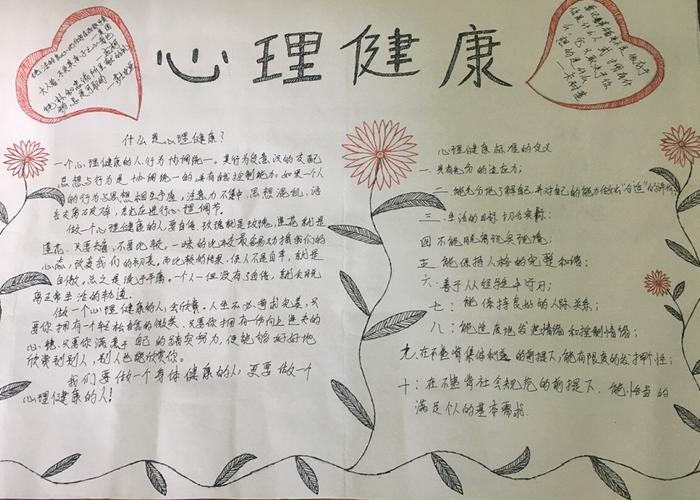 心理健康
什么是心理健康?
一个心理健康的人,行为协调统一。其行为受意识的支配
思想与行为是协调统一的,并有自我控制能力。如果一个人
的行为与思想相互矛盾,注意力不集中,思想混乱,语
言支离破碎,
应进行心理调节。
做一个心理健康的人,要自信。玫瑰就是玫瑰,莲花就是
莲花,只要去看,不要比较。一味的比较最容易动摇我们的
心态,改变我们的初衷。而比较的结果,使人不是自卑,就是
自傲,总之是流于平庸。一个人一但没有了自信,就会脱
离正常生活的轨道。
做一个心理健康的人,会欣赏。人生不必要求完美,只
要你拥有一个轻松自然的微笑,只要你拥有一份向上进步的
心态,只要你满足于自己的踏实努力,便能够好好地
欣赏到别人,别人也能欣赏你。
我们要做一个身体健康的人,更要做一个
心理健康的人!
心理健康标准的定义
一、具有充分的适应力;
二、能充分地了解自己,并对自己的能力做出"合适"的评价;
三、生活的目标切合实际;
四、不能脱离现实环境;
五、能保持人格的完整和谐;
六、善于从经验中学习;
七、能保持良好的人际关系;
八、能适度地发泄情绪和控制情绪;
九、在不违背集体利益的前提下,能有限度的发挥个性;
十、在不违背社会规范的前提下,能恰当的
满足个人的基本需求.